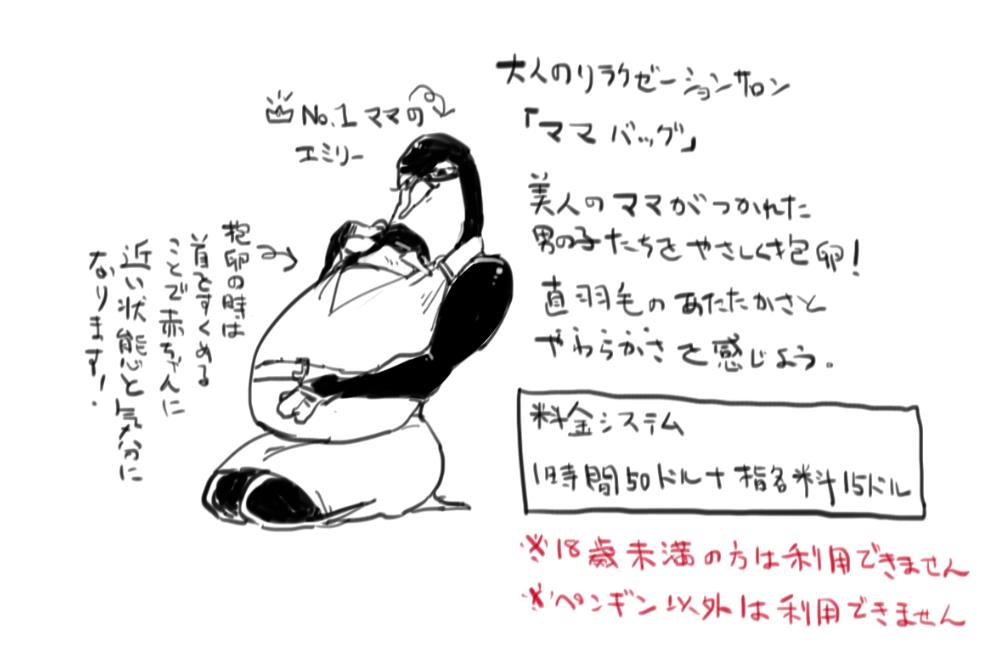 大人のリラクゼーションサロン
「ママバッグ」
No.1 ママの
エミリー
美人のママがつかれた
男の子たちをやさしく抱卵!
直羽毛のあたたかさと
やわらかさを感じよう。
抱卵の時は
首をすくめる
ことで赤ちゃんに
近い状態と気分に
なります!
料金システム
1時間50ドル+指名料15ドル
※18歳未満の方は利用できません
※ペンギン以外は利用できません